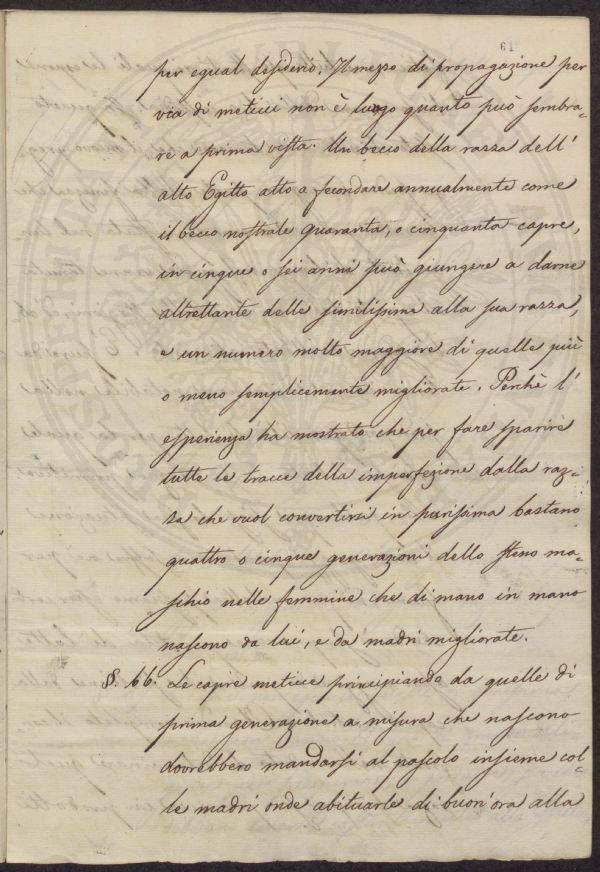 61
per egual desiderio. Il mezzo di propagazione per
via di meticci non è luogo quanto può sembra-
re a prima vista. Un becco della razza dell'
alto Egitto atto a fecondare annualmente come
il becco nostrale quaranta, o cinquanta capre,
in cinque o sei anni può giungere a darne
altrettante delle similissime alla sua razza,
e un numero molto maggiore di quelle più
o meno semplicemente migliorate. Perchè l'
esperienza ha mostrato che per fare sparire
tutte le tracce della imperfezione dalla raz-
za che vuol convertirsi in purissima bastano
quattro o cinque generazioni dello stesso ma-
schio nelle femmine che di mano in mano
nascono da lui, e da madri migliorate.
§. 66. Le capre meticce principiando da quelle di
prima generazione a misura che nascono
dovrebbero mandarsi al pascolo insieme col-
le madri onde abituarle di buon'ora alla